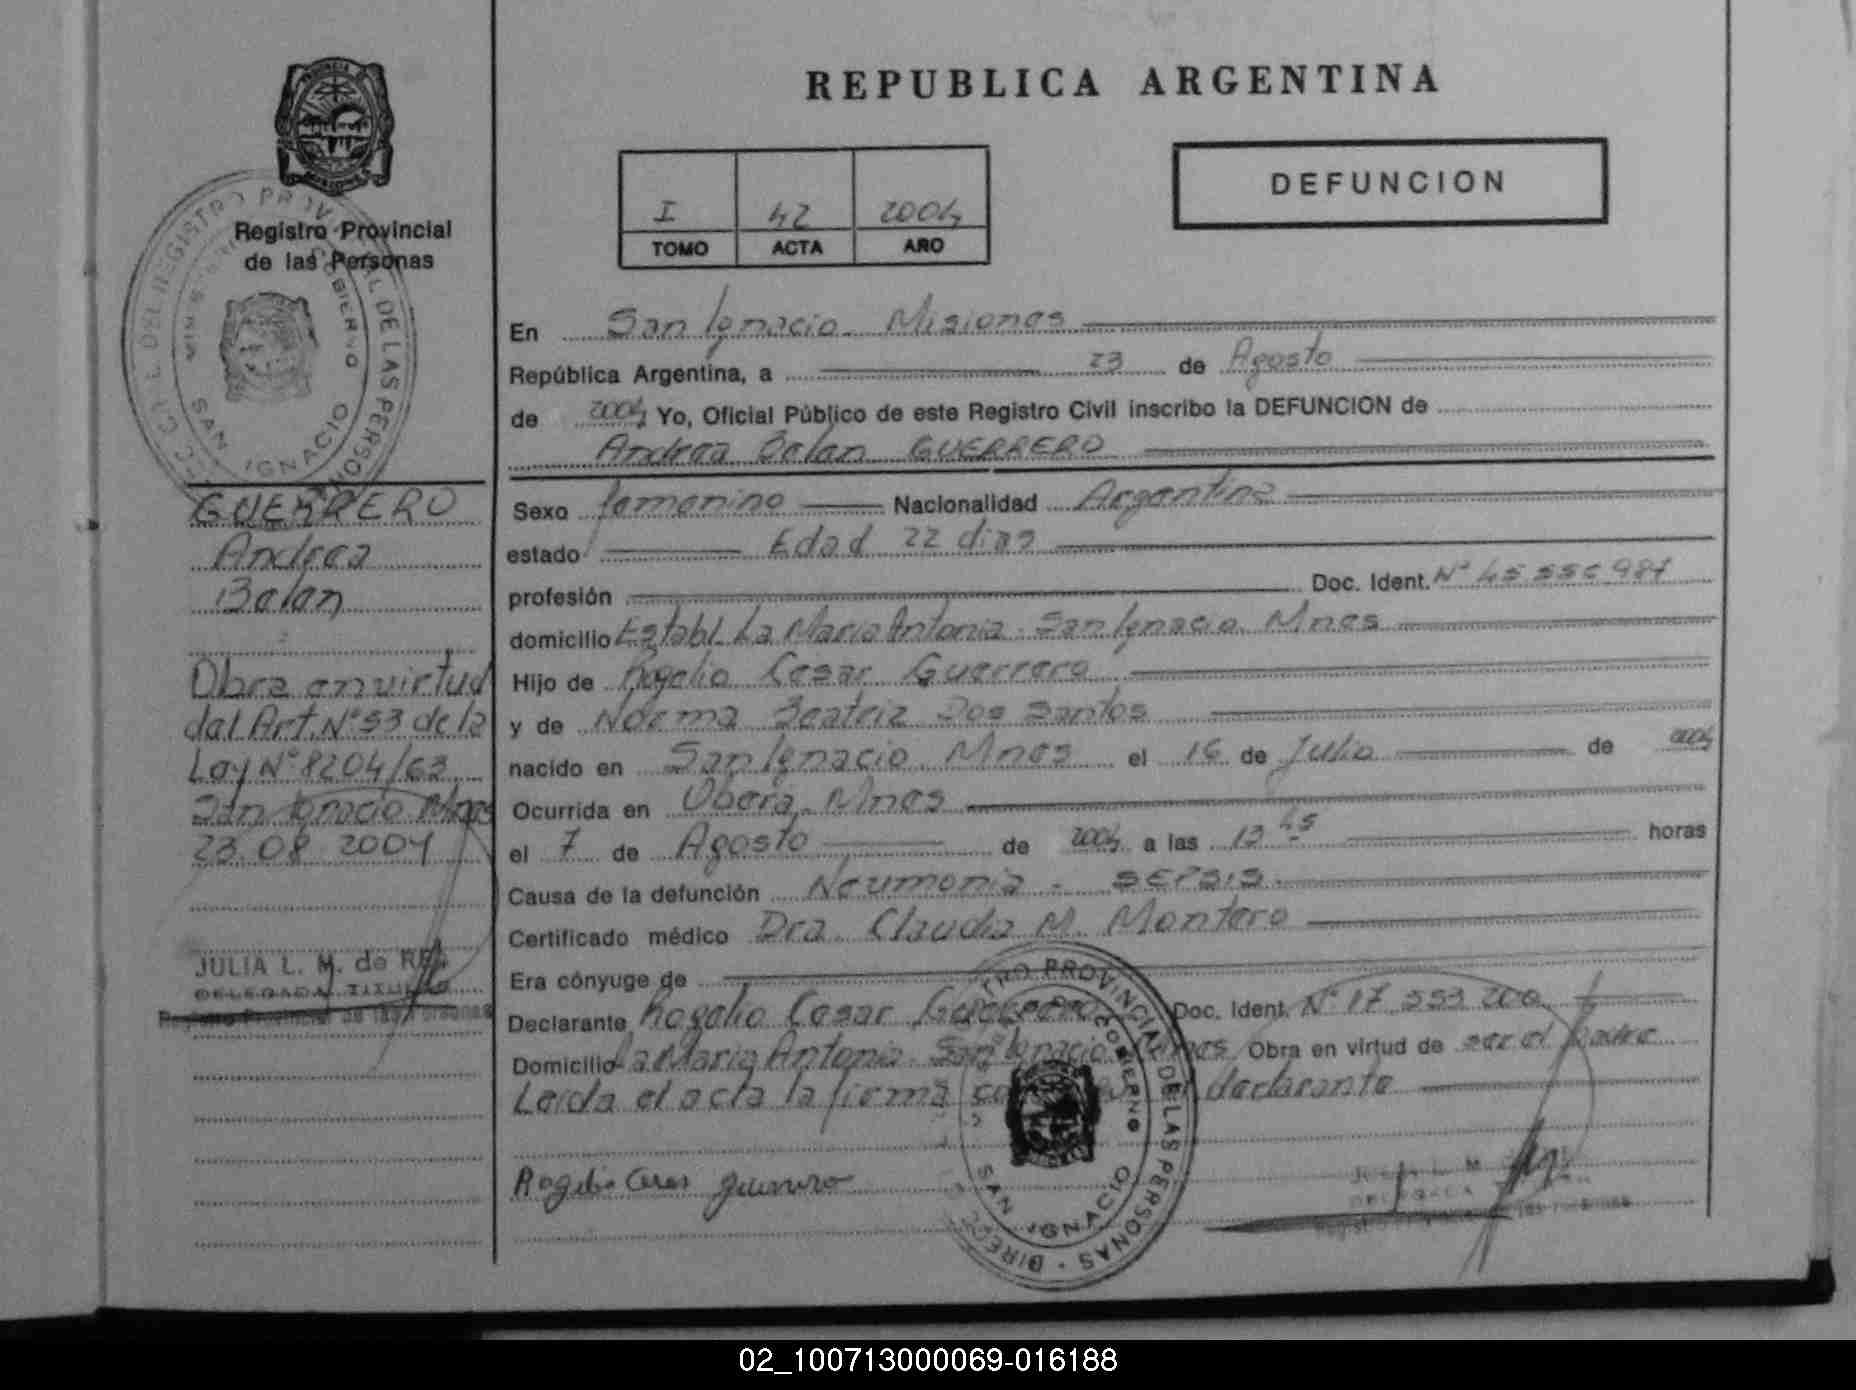 REPUBLICA ARGENTINA
DEFUNCION
I 42 2004
TOMO ACTA AÑO
PROVINCIA DE
MISIONES
Registro Provincial
de las Personas
REGISTRO PROVINCIAL DE LAS PERSONAS
GOBIERNO
SAN IGNACIO
GUERRERO
Andrea
Belen
Obra en virtud
del Art. N° 53 de la
Ley N° 8204/63
San Ignacio Mnes
23.08.2004
JULIA L. M. de
DELEGADA TITULAR
Registro Provincial de las Personas
En San Ignacio Misiones
República Argentina, a 23 de Agosto
de 2004 Yo, Oficial Público de este Registro Civil inscribo la DEFUNCION de
Andrea Belen GUERRERO
Sexo femenino Nacionalidad Argentina
estado Edad 22 dias
profesión Doc. Ident. N° 45.556.987
domicilio Establ. La Maria Antonia. San Ignacio Mnes
Hijo de Rogelio Cesar Guerrero
y de Norma Beatriz Dos Santos
nacido en San Ignacio Mnes el 16 de Julio de 2004
Ocurrida en Obera. Mnes
el 7 de Agosto de 2004 a las 13 45 horas
Causa de la defunción Neumonia - SEPSIS.
Certificado médico Dra. Claudia M. Montero
Era cónyuge de
Declarante Rogelio Cesar Guerrero Doc. Ident. N° 17.553.200
Domicilio La Maria Antonia. San Ignacio Mnes Obra en virtud de ser el padre
Leida el acta la firma el declarante
Rogelio Cesar Guerrero
REGISTRO PROVINCIAL DE LAS PERSONAS
GOBIERNO
SAN IGNACIO
JULIA L. M.
DELEGADA
02_100713000069-016188